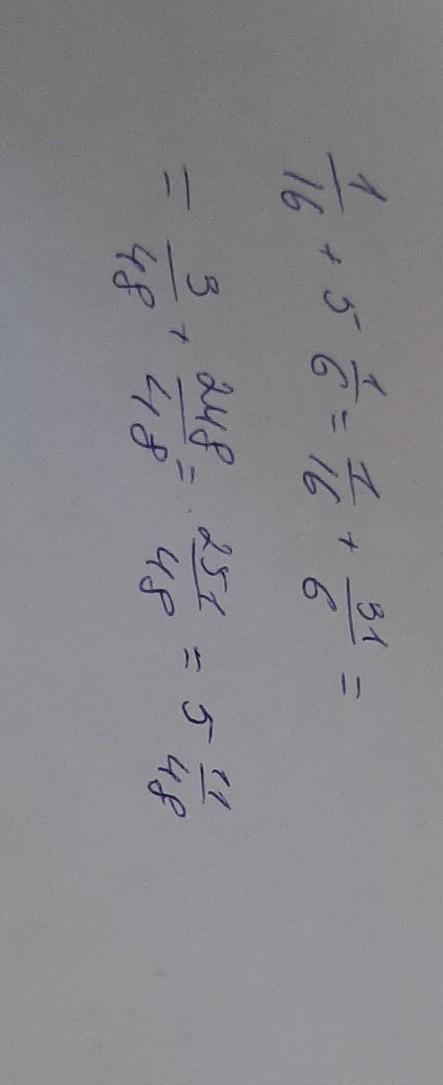 1/16 + 5 1/6 = 1/16 + 31/6 =
= 3/48 + 248/48 = 251/48 = 5 11/48